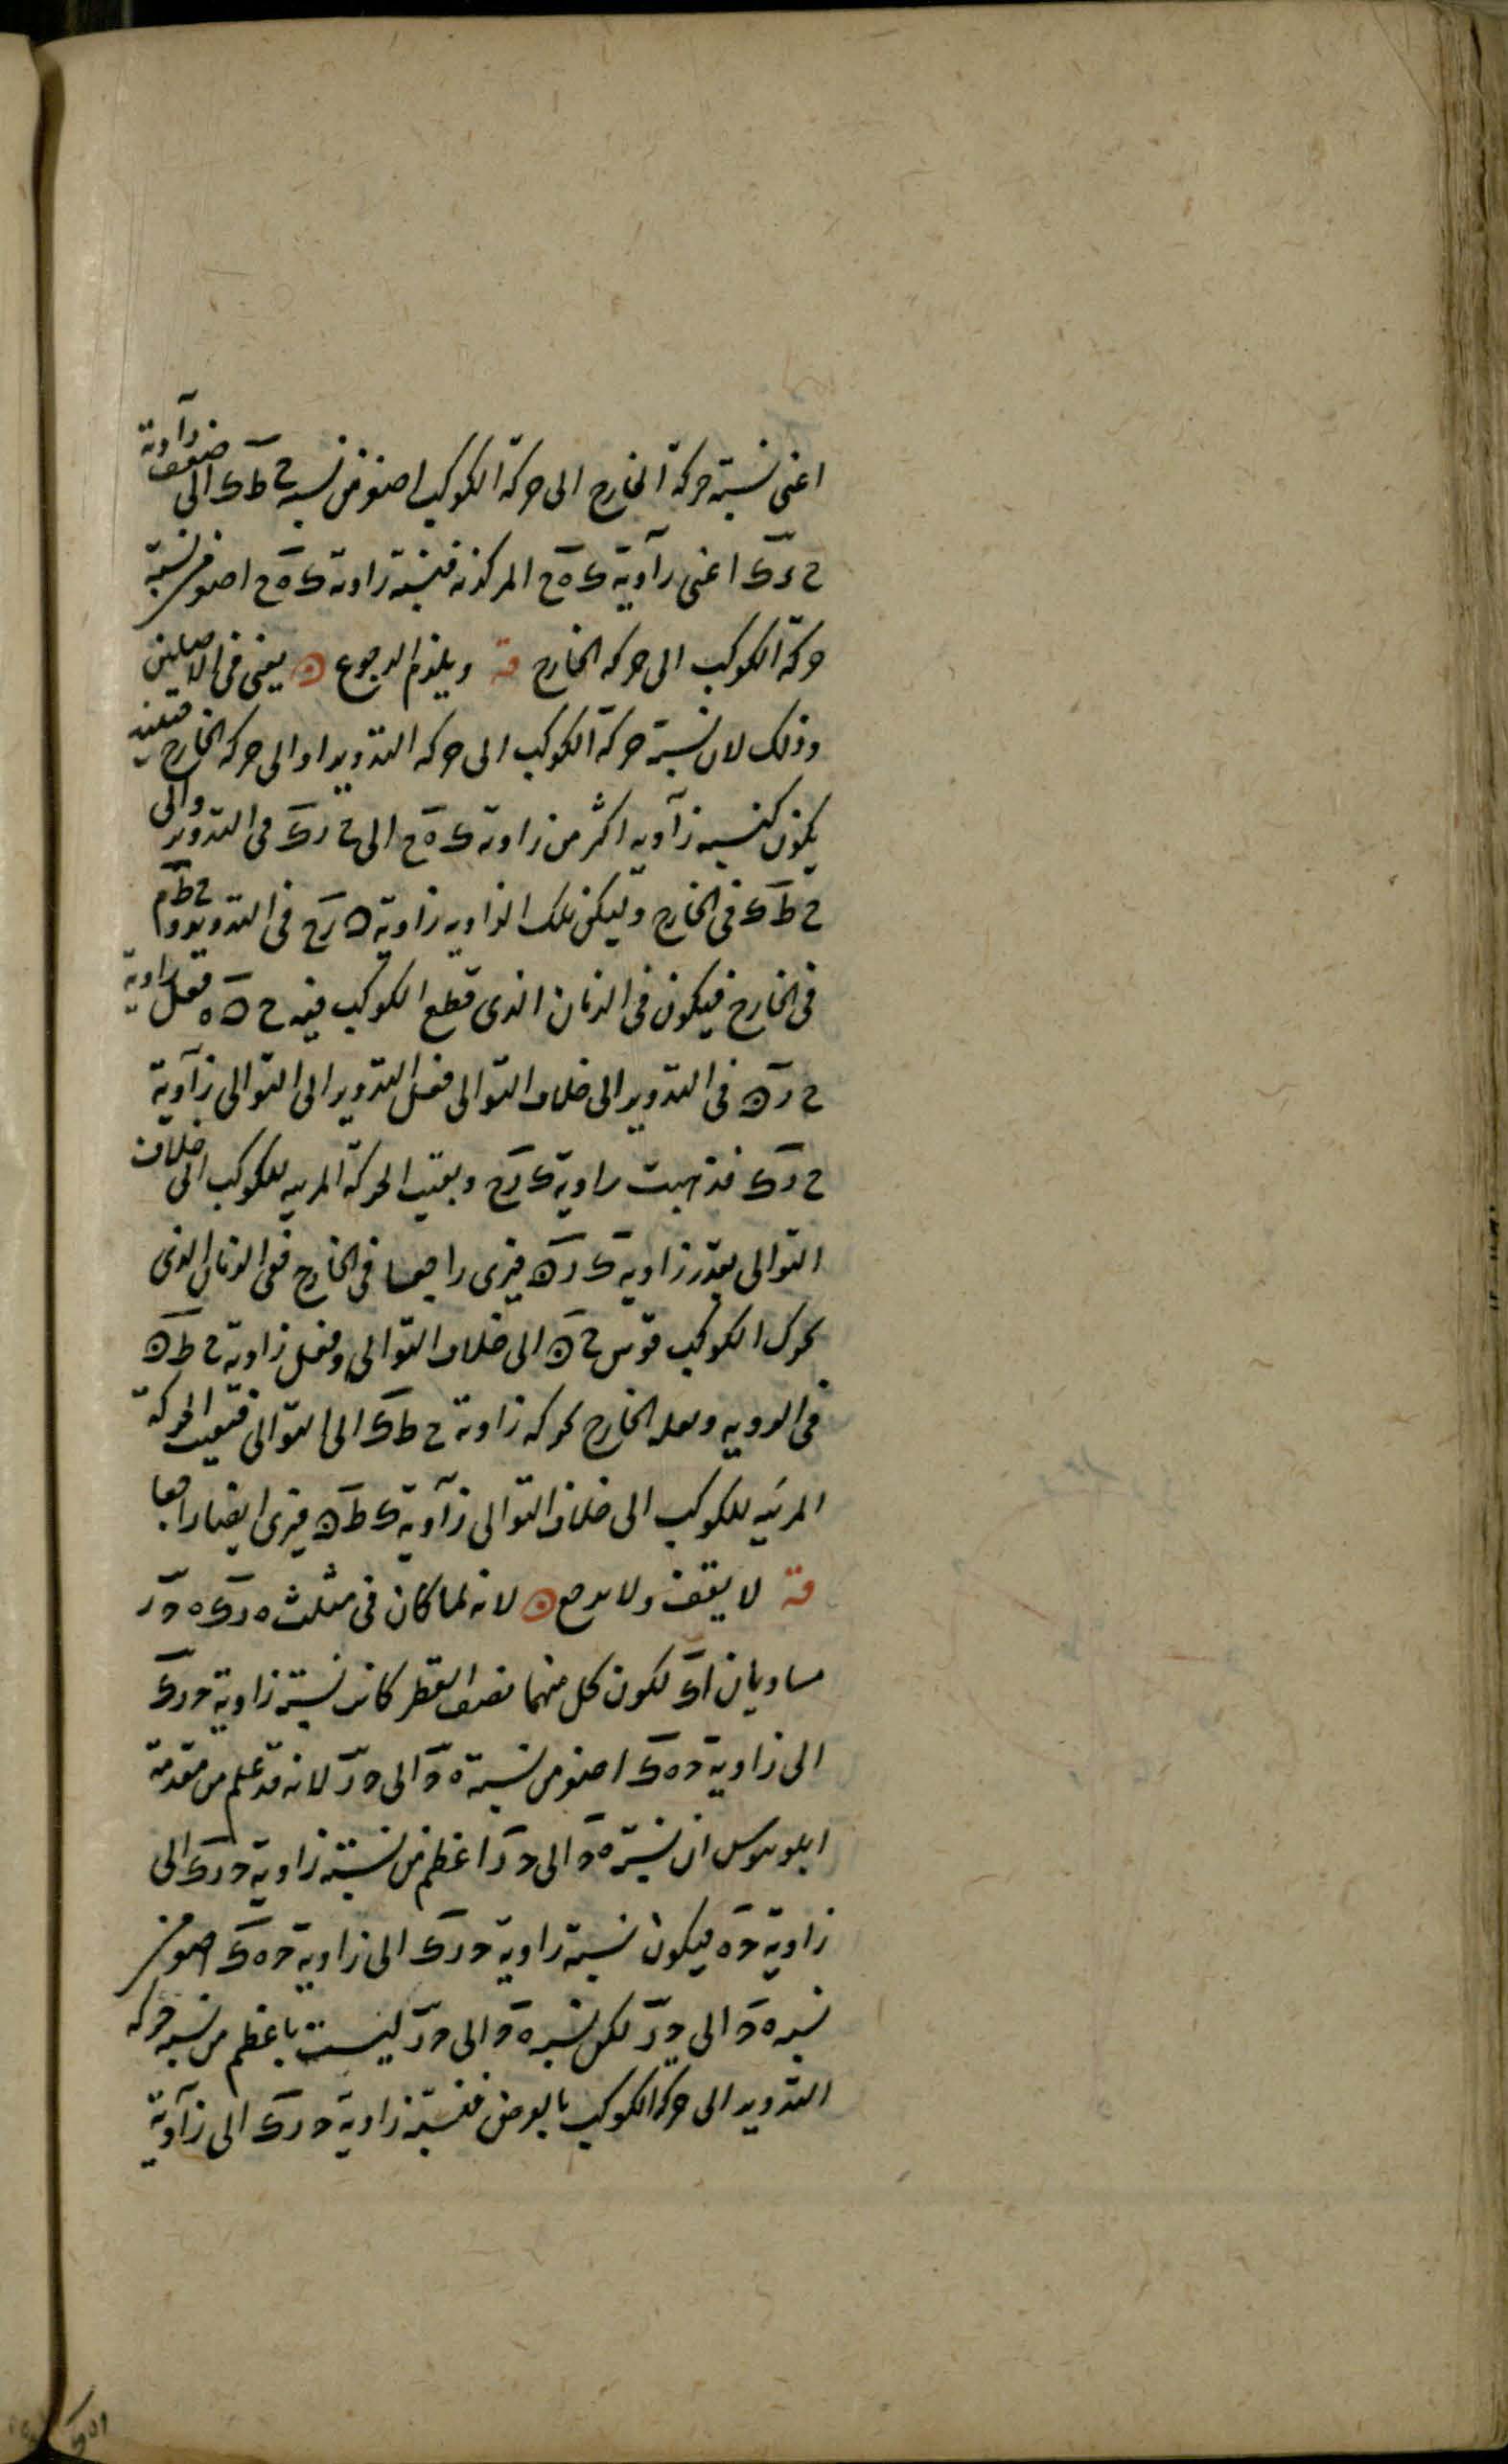 اعنى نسبة حركة الخارج الى حركة الكوكب اصغر من نسبة ح ط ك الى ضعف زاوية
ح ر ك اعنى زاوية ك ه ح المركزية فنسبة زاوية ك ه ح اصغر من نسبة
حركة الكوكب الى حركة الخارج قه ويلزم الرجوع ه يعنى فى الاصلين
وذلك لان نسبة حركة الكوكب الى حركة التدوير او الى حركة الخارج
يكون كنسبة زاوية اكثر من زاوية ك ه ح الى ح ر ك فى التدوير والى
ح ط ك فى الخارج وليكن تلك الزاوية زاوية ن ر ح فى التدوير و ح ط م
فى الخارج فيكون فى الزمان الذى قطع الكوكب فيه ح ن ه فعل زاوية
ح ر ن فى التدوير الى خلاف التوالى فعل التدوير الى التوالى زاوية
ح ر ك فذهبت زاوية ك ر ح وبقيت الحركة المرئية للكوكب الى خلاف
التوالى بقدر زاوية ك ر ن فيرى راجعا فى الخارج ففى الزمان الذى
تحرك الكوكب قوس ح ن الى خلاف التوالى وفعل زاوية ح ط ن
فى الرؤية ونقله الخارج بحركة زاوية ح ط ك الى التوالى فبقيت الحركة
المرئيه للكوكب الى خلاف التوالى زاوية ك ط ن فيرى ايضا راجعا
قه لا يقف ولا يرجع ه لانه لما كان فى مثلث ه ر ك ه د ر
مساويان لكون كل منهما نصف القطر كانت نسبة زاوية د ر ك
الى زاوية د ه ك اصغر من نسبة ه د الى د ر لانه قد علم من مقدمة
ابلونيوس ان نسبة ه د الى د ر اعظم من نسبة زاوية د ر ك الى
زاوية د ه فيكون نسبة زاوية د ر ك الى زاوية د ه ك اصغر من
نسبة ه د الى د ر لكن نسبة ه د الى د ر ليست باعظم من نسبة حركة
التدوير الى حركة الكوكب بالفرض فنسبة زاوية د ر ك الى زاوية